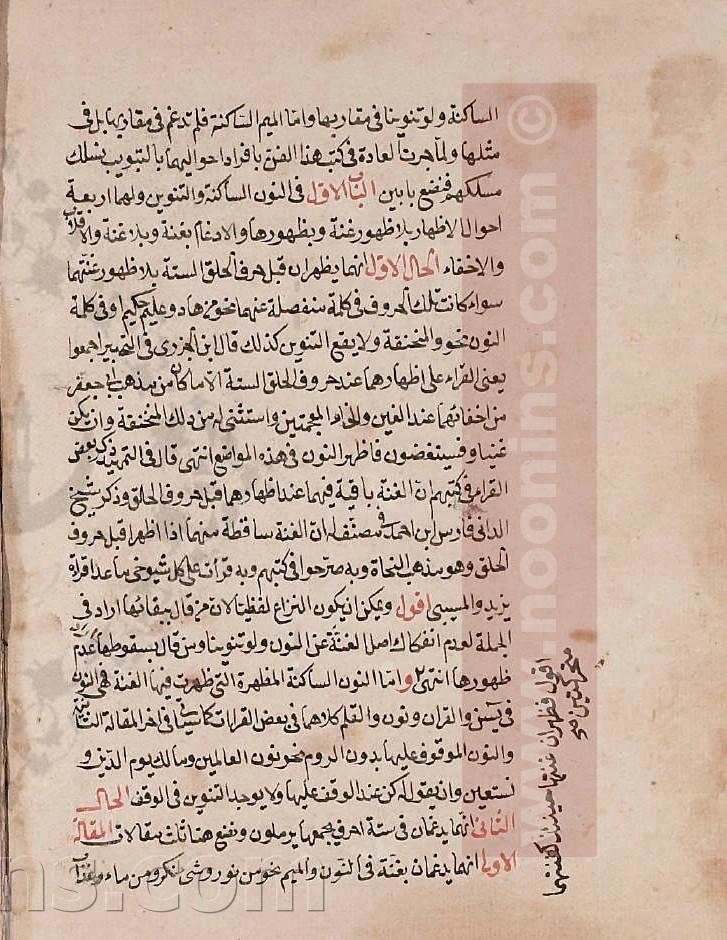 الساكنة ولو تنوينا في مقاربها واما الميم الساكنة فلم تدغم في مقاربها بل في
مثلها ولما جرت العادة في كتب هذا الفن بافراد احوالهما بالتبويب نسلك
مسلكهم فنضع بابين الباب الاول في النون الساكنة والتنوين ولهما اربعة
احوال الاظهار بلا ظهور غنة وبظهورها والادغام بغنة وبلا غنة والاقلاب
والاخفاء الحال الاول انهما يظهران قبل حرف الحلق الستة بلا ظهور غنتهما
سواء كانت تلك الحروف في كلمة منفصلة عنهما نحو من هاد وعليم حكيم او في كلمة
النون نحو والمنخنقة ولا يقع التنوين كذلك قال ابن الجزري في التحبير اجمعوا
يعني القراء على اظهارهما عند حروف الحلق الستة الا ما كان من مذهب ابي جعفر
من اخفائهما عند الغين والخاء المعجمتين واستثنى له من ذلك المنخنقة وان يكن
غنيا وفسينغضون فاظهر النون في هذه المواضع انتهى قال في التمهيد ذكر بعض
القراء في كتبهم ان الغنة باقية فيهما عند اظهارهما قبل حروف الحلق وذكر شيخ
الداني فارس ابن احمد في مصنف له ان الغنة ساقطة منهما اذا اظهرا قبل حروف
الحلق وهو مذهب النحاة وبه صرحوا في كتبهم وبه قرأت على كل شيوخي ما عدا قراءة
يزيد والمسيبي اقول ويمكن ان يكون النزاع لفظيا لان من قال ببقائها اراد في
الجملة لعدم انفكاك اصل الغنة عن النون ولو تنوينا ومن قال بسقوطها عدم
ظهورها انتهى واما النون الساكنة المظهرة التي ظهرت فيها الغنة فهي النون
في يسن والقران ونون والقلم كلاهما في بعض القرات كما سيأتي في اخر المقالة الثانية
والنون الموقوف عليها بدون الروم نحو نون العالمين ومالك يوم الدين و
نستعين وان يقول له كن عند الوقف عليها ولا يوجد التنوين في الوقف الحال
الثاني انهما يدغمان في ستة احرف يجمعها يرملون ونضع هنا ثلث مقالات المقالة
الاولى انهما يدغمان بغنة في النون والميم نحو من نور وشئ نكر ومن ماء وعذاب
اقول فظهران غنتها حينئذ كغنتهما
متحركتين صح
© www.noonins.com
ns.com